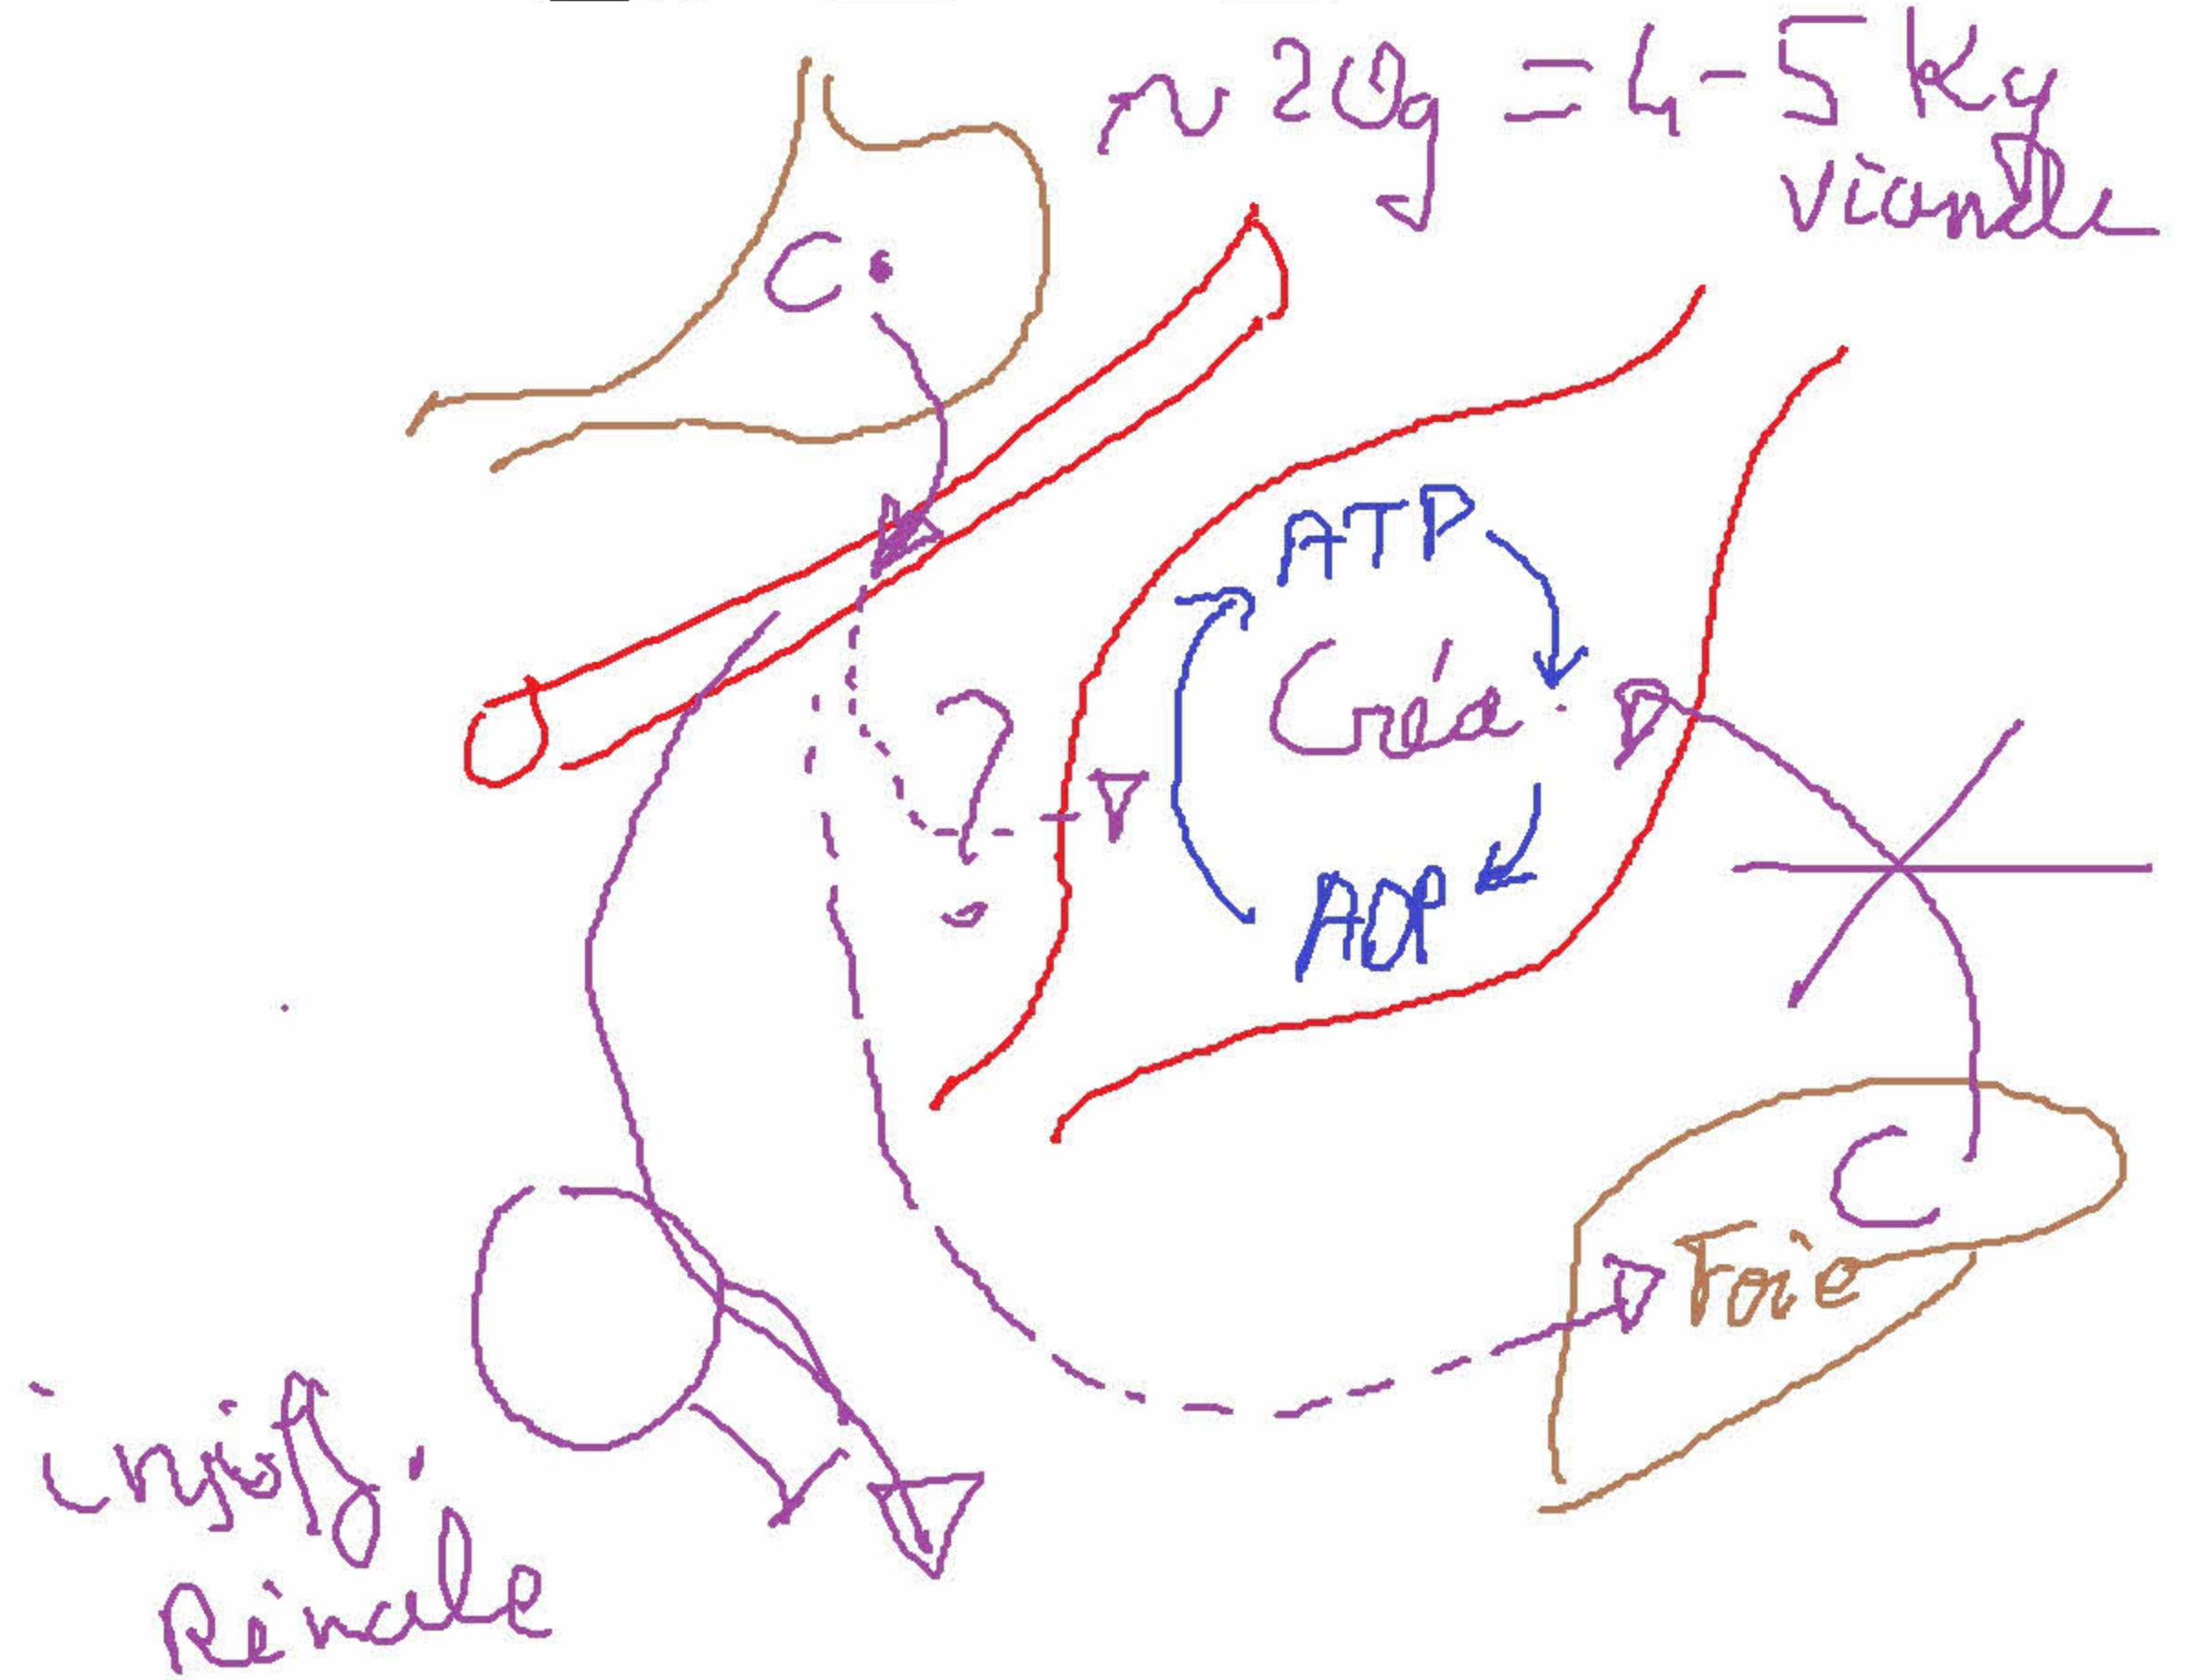 ~ 20g = 4-5 Kg
viande
C
ATP
Créa
?
ADP
C
Foie
insuf.
Rénale